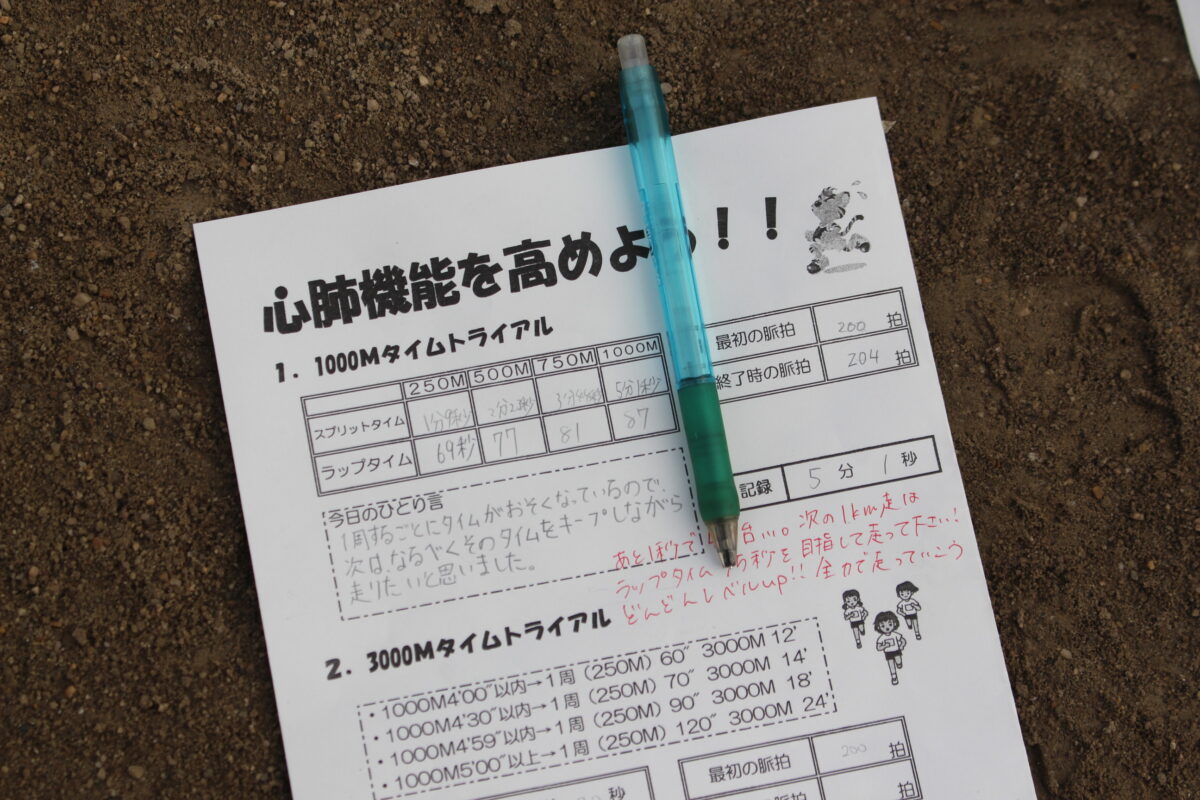 心肺機能を高めよう！！
1. 1000Mタイムトライアル
250M 500M 750M 1000M
スプリットタイム 1分9秒 2分26秒 5分1秒
ラップタイム 69秒 77 81 87
最初の脈拍 200 拍
終了時の脈拍 204 拍
記録 5 分 1 秒
今日のひとり言
1周するごとにタイムがおそくなっているので、
次は、なるべくそのタイムをキープしながら
走りたいと思いました。
あと1秒で 台!!。次の1km走は
ラップタイム 75秒を目指して走って下さい!
どんどんレベルup!! 全力で走っていこう
2. 3000Mタイムトライアル
・1000M4'00"以内→1周（250M）60" 3000M 12'
・1000M4'30"以内→1周（250M）70" 3000M 14'
・1000M4'59"以内→1周（250M）90" 3000M 18'
・1000M5'00"以上→1周（250M）120" 3000M 24'
最初の脈拍 200 拍
秒
拍